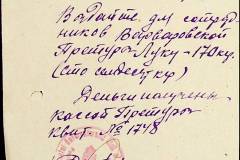 Выдайте для сотруд
ников Варваровской
Претуры Луку - 170 кг.
(сто семдесят кг)
Деньги получены
кассой Претуры
квит № 1748